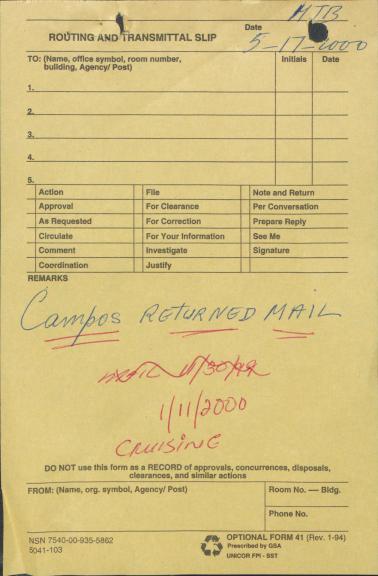 MTB
ROUTING AND TRANSMITTAL SLIP
Date
5-17-2000
TO: (Name, office symbol, room number, building, Agency/ Post)
Initials
Date
1.
2.
3.
4.
5.
Action File Note and Return
Approval For Clearance Per Conversation
As Requested For Correction Prepare Reply
Circulate For Your Information See Me
Comment Investigate Signature
Coordination Justify
REMARKS
Campos RETURNED MAIL
11/30/99
1/11/2000
CRUISING
DO NOT use this form as a RECORD of approvals, concurrences, disposals,
clearances, and similar actions
FROM: (Name, org. symbol, Agency/ Post)
Room No. — Bldg.
Phone No.
NSN 7540-00-935-5862
5041-103
OPTIONAL FORM 41 (Rev. 1-94)
Prescribed by GSA
UNICOR FPI - SST